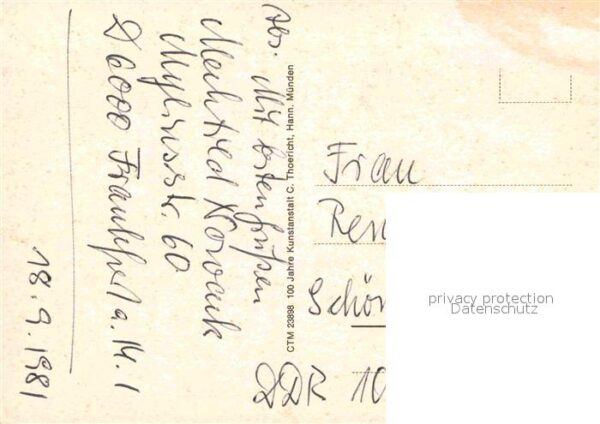 Abs. Mit besten Grüßen
Mechthild
Myliusstr. 60
D 6000 Frankfurt a. M. 1
18.9.1981
CTM 23898 100 Jahre Kunstanstalt C. Thoericht, Hann. Münden
Frau
Ren
Schön
DDR 10
privacy protection
Datenschutz